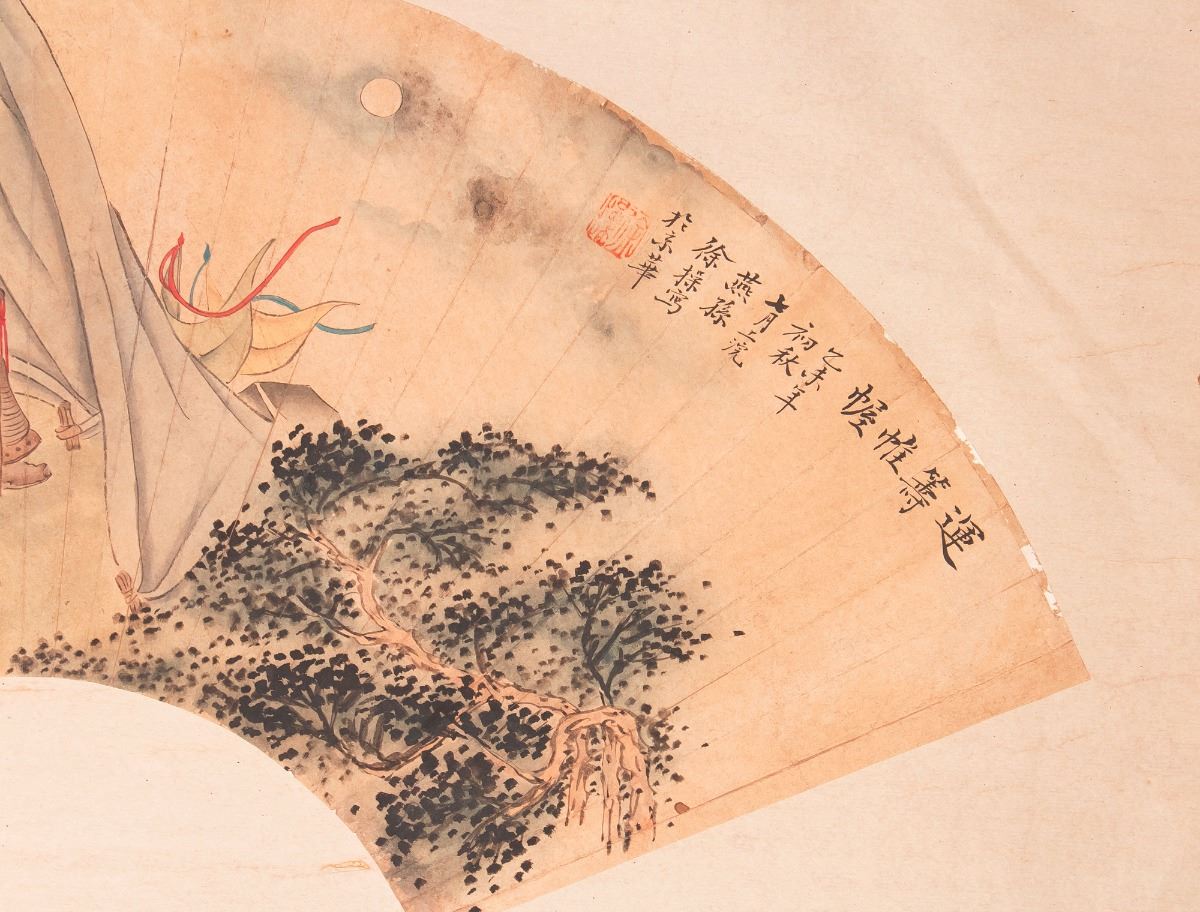 運筹帷幄
乙未年
初秋
七月上浣
燕孫
徐操寫
於京華